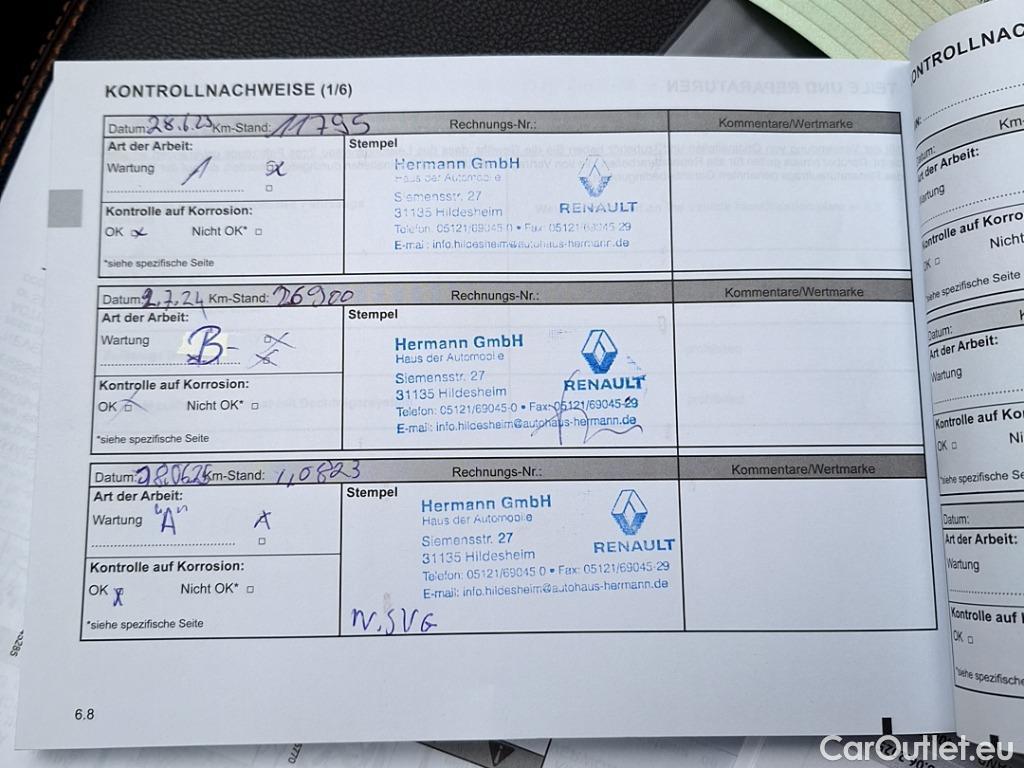 KONTROLLNACHWEISE (1/6)
Datum: 28.6.23 Km-Stand: 11795 Rechnungs-Nr.: Kommentare/Wertmarke
Art der Arbeit: Stempel
Wartung
Hermann GmbH
Haus der Automobile
Siemensstr. 27
31135 Hildesheim
Telefon: 05121/69045-0 • Fax: 05121/69045-29
E-mail: info.hildesheim@autohaus-hermann.de
RENAULT
Kontrolle auf Korrosion:
OK Nicht OK*
*siehe spezifische Seite
Datum: 2.7.24 Km-Stand: 26900 Rechnungs-Nr.: Kommentare/Wertmarke
Art der Arbeit: Stempel
Wartung B
Hermann GmbH
Haus der Automobile
Siemensstr. 27
31135 Hildesheim
Telefon: 05121/69045-0 • Fax: 05121/69045-29
E-mail: info.hildesheim@autohaus-hermann.de
RENAULT
Kontrolle auf Korrosion:
OK Nicht OK*
*siehe spezifische Seite
Datum: Km-Stand: Rechnungs-Nr.: Kommentare/Wertmarke
Art der Arbeit: Stempel
Wartung "A"
Hermann GmbH
Haus der Automobile
Siemensstr. 27
31135 Hildesheim
Telefon: 05121/69045-0 • Fax: 05121/69045-29
E-mail: info.hildesheim@autohaus-hermann.de
RENAULT
Kontrolle auf Korrosion:
OK Nicht OK*
*siehe spezifische Seite
6.8
Datum:
Wartung
OK
Datum:
Art der Arbeit:
Wartung
OK
Datum:
Art der Arbeit:
Wartung
OK
CarOutlet.eu